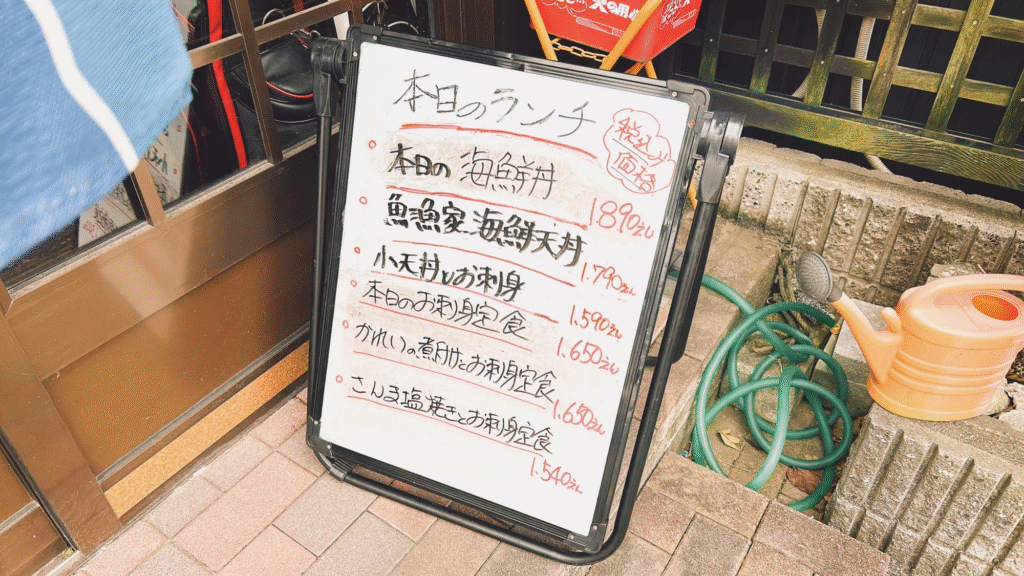 本日のランチ
税込み
価格
本日の 海鮮丼
1890えん
魚漁家 海鮮天丼
1.790えん
小天丼とお刺身
1.590えん
本日のお刺身定食
1.650えん
かれいの煮付とお刺身定食
1.650えん
さんま塩焼きとお刺身定食
1.540えん